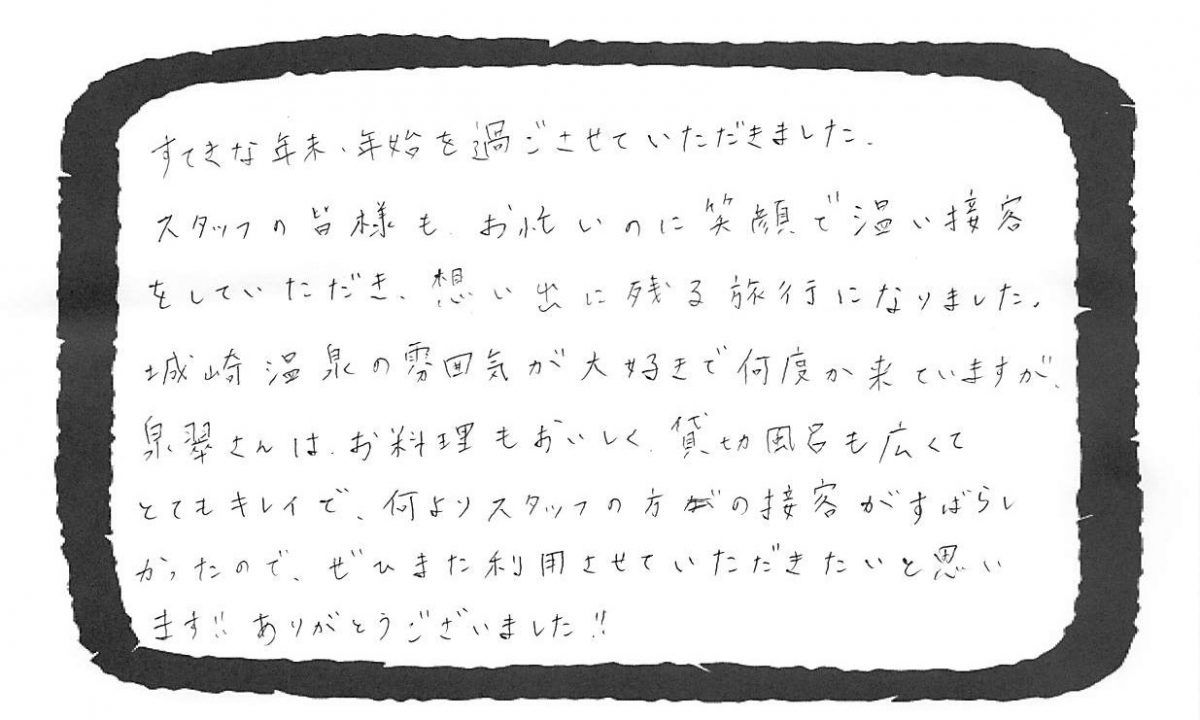 すてきな年末、年始を過ごさせていただきました。
スタッフの皆様も、お忙しいのに笑顔で温い接客
をしていただき、想い出に残る旅行になりました。
城崎温泉の雰囲気が大好きで何度か来ていますが、
泉翠さんは、お料理もおいしく、貸切風呂も広くて
とてもキレイで、何よりスタッフの方々の接客がすばらし
かったので、ぜひまた利用させていただきたいと思い
ます!! ありがとうございました!!